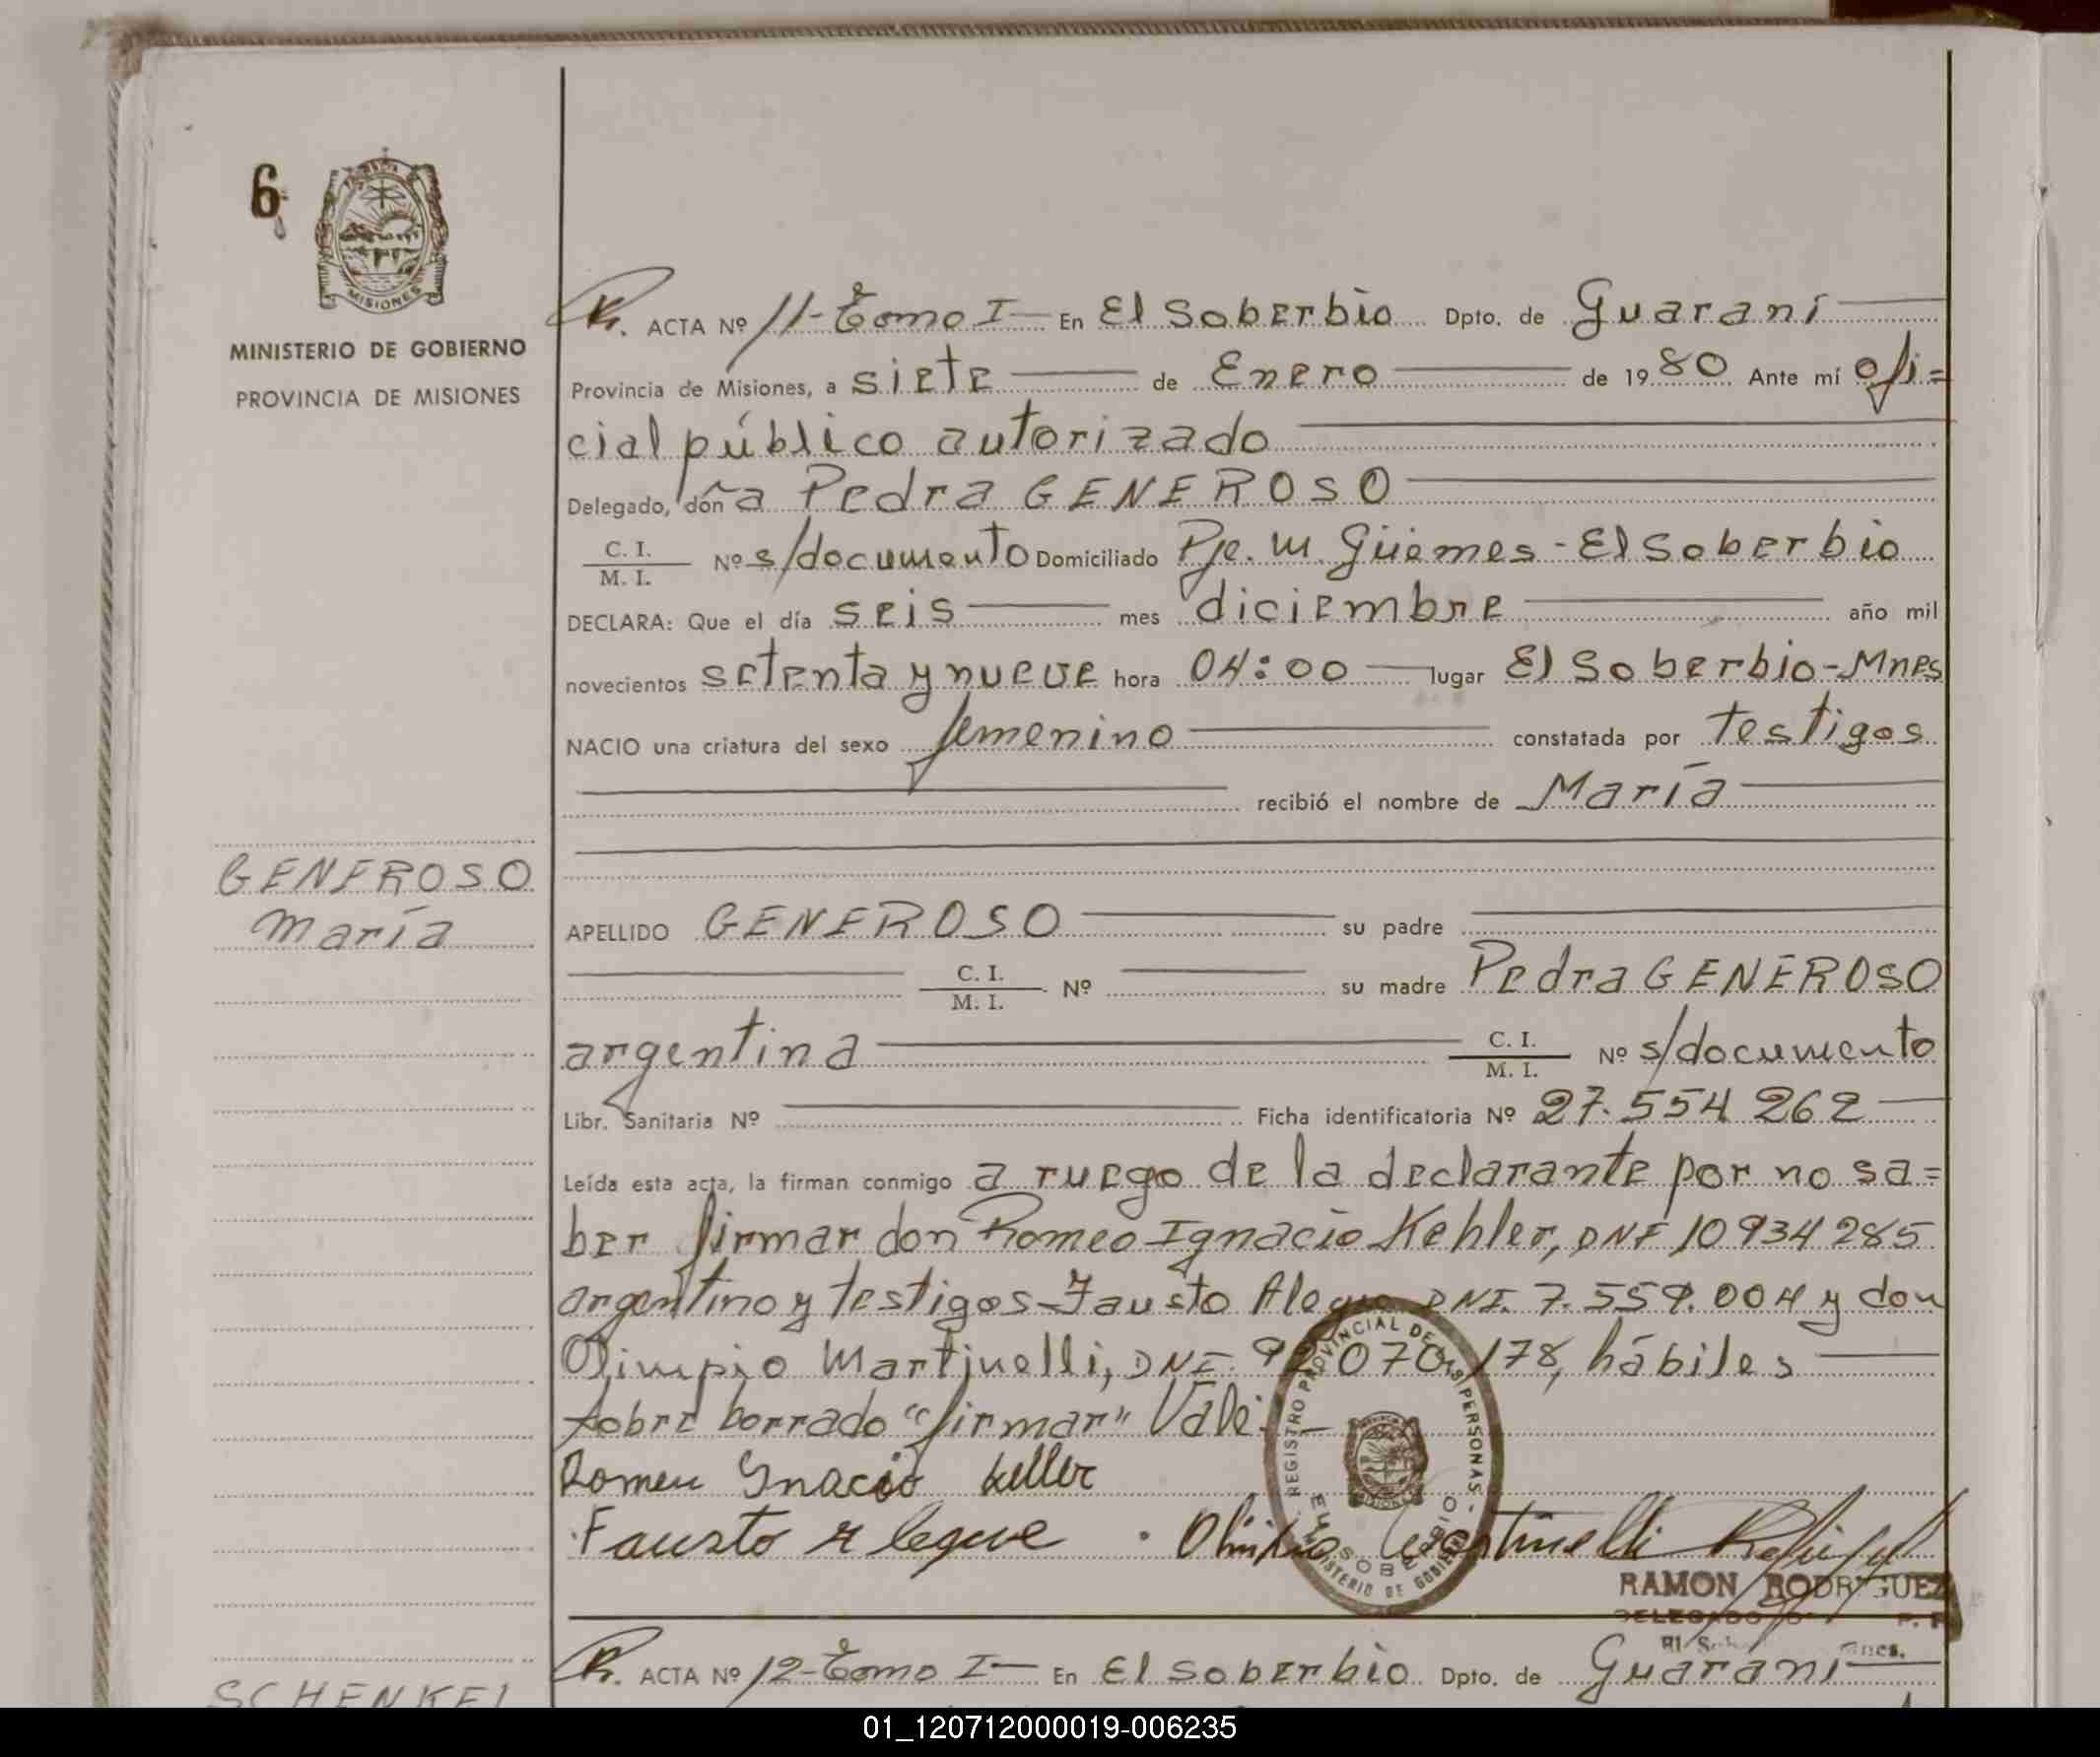 6
MISIONES
MINISTERIO DE GOBIERNO
PROVINCIA DE MISIONES
ACTA Nº 11-Tomo I- En El Soberbio Dpto. de Guaraní
Provincia de Misiones, a siete de Enero de 1980 Ante mí ofi=
cial público autorizado
Delegado, doña Pedra GENEROSO
C. I.
M. I. Nº s/documento Domiciliado Pje. M. Güemes - El Soberbio
DECLARA: Que el día seis mes diciembre año mil
novecientos setenta y nueve hora 04:00 lugar El Soberbio-Mnes
NACIO una criatura del sexo femenino constatada por testigos
recibió el nombre de María
GENEROSO
María
APELLIDO GENEROSO su padre
C. I.
M. I. Nº su madre Pedra GENEROSO
argentina C. I.
M. I. Nº s/documento
Libr. Sanitaria Nº Ficha identificatoria Nº 27.554 262
Leída esta acta, la firman conmigo a ruego de la declarante por no sa=
ber firmar don Romeo Ignacio Kehler, DNI 10 934 285
argentino y testigos Fausto Alegre DNI. 7.559.004 y don
Olimpio Martinelli, DNI. 92 070 178, hábiles
sobre borrado "firmar" Vale.-
Romeu Ynacio Keller
Fausto Alegre Olimpio Martinelli
REGISTRO PROVINCIAL DE LAS PERSONAS
MISIONES
EL SOBERBIO
MINISTERIO DE GOBIERNO
RAMON RODRIGUEZ
DELEGADO
ACTA Nº 12-Tomo I- En El Soberbio Dpto. de Guaraní
SCHENKEL
01_120712000019-006235